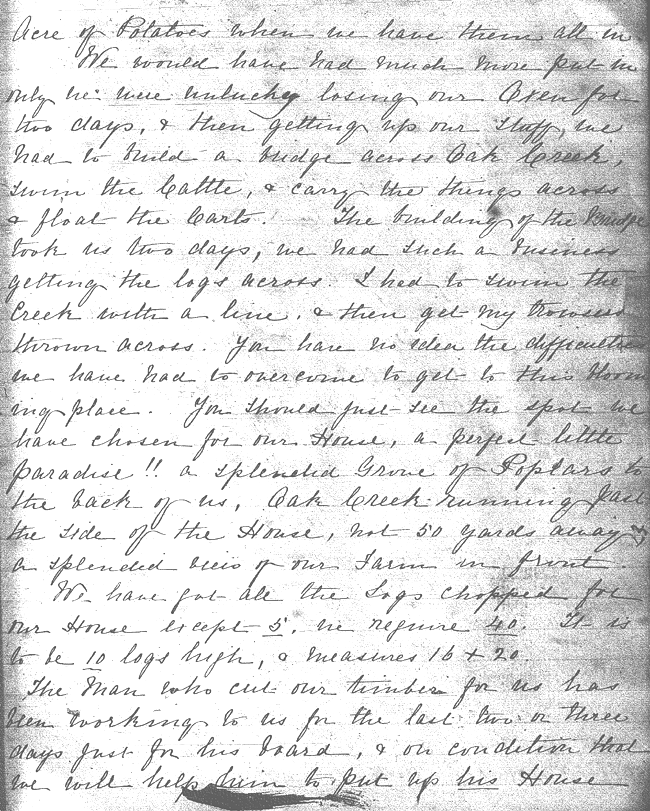 Acre of Potatoes when we have them all in
We would have had much more put in
only we were unlucky losing our Oxen for
two days, & then getting up our stuff, we
had to build a bridge across Oak Creek,
swim the Cattle, & carry the things across
& float the Carts. The building of the Bridge
took us two days, we had such a business
getting the logs across. I had to swim the
Creek with a line, & then get my trousers
thrown across. You have no idea the difficulties
we have had to overcome to get to this
ing place. You should just see the spot we
have chosen for our House, a perfect little
paradise!! a splendid Grove of Poplars to
the back of us, Oak Creek running past
the side of the House, not 50 yards away &
a splended view of our Farm in front.
We have got all the Logs chopped for
our House except 5, we require 40. It is
to be 10 logs high, & measures 16 + 20.
The Man who cut our timber for us has
been working to us for the last two or three
days just for his board, & on condition that
we will help him to put up his House